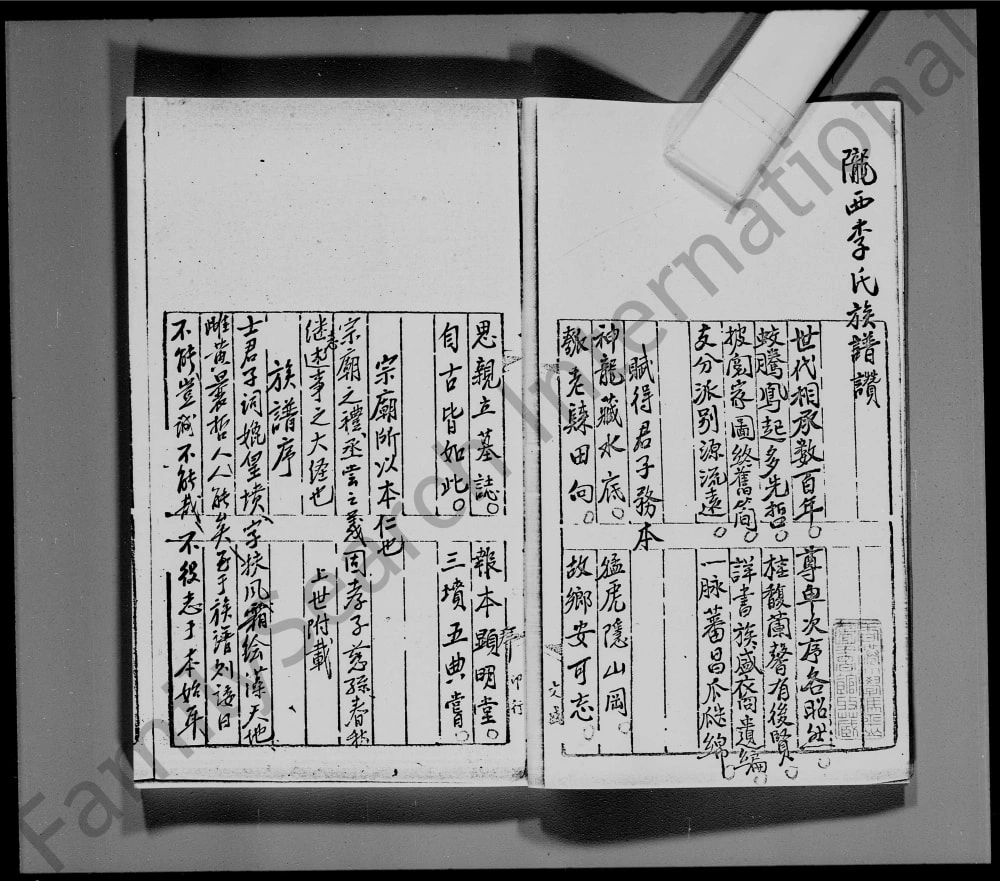 隴西李氏族譜讚
世代相承数百年。尊卑次序各昭然。
蛟騰鳳起多先哲。桂馥蘭馨有後賢。
披閱家圖終舊简。詳書族盛衣冏遺编。
支分派别源流遠。一脉蕃昌瓜瓞綿。
賦得君子務本
神龍藏水底。猛虎隱山岡。
老辣田向。故鄉安可志。
思親立墓誌。報本顕明堂。
自古皆如此。三墳五典嘗。
宗廟所以本仁也
宗廟之禮丞尝之義固孝子慈孫春秋
继述事之大经也 上世附載
族譜序
士君子词媲皇墳字挟风霜绘藻天地
雌黄曩哲人人能矣至于族譜则诿曰
不能豈誠不能哉不役志于本始耳
印行
FamilySearch International